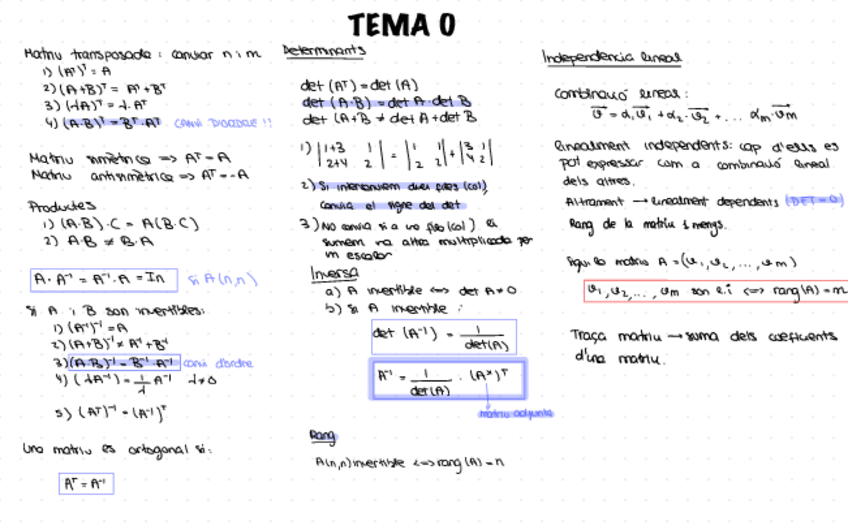 TEMA 0
Matriu transposada: canviar n i m
1) (Aᵀ)ᵀ = A
2) (A+B)ᵀ = Aᵀ + Bᵀ
3) (λA)ᵀ = λ · Aᵀ
4) (A·B)ᵀ = Bᵀ · Aᵀ CANVI D'ORDRE !!
Matriu simètrica => Aᵀ = A
Matriu antisimètrica => Aᵀ = -A
Productes
1) (A·B) · C = A(B·C)
2) A·B ≠ B·A
A · A⁻¹ = A⁻¹ · A = In si A(n,n)
Si A i B són invertibles:
1) (A⁻¹)⁻¹ = A
2) (A+B)⁻¹ ≠ A⁻¹ + B⁻¹
3) (A·B)⁻¹ = B⁻¹ · A⁻¹ canvi d'ordre
4) (λA⁻¹) = 1/λ A⁻¹ λ≠0
5) (Aᵀ)⁻¹ = (A⁻¹)ᵀ
Una matriu és ortogonal si:
Aᵀ = A⁻¹
Determinants
det (Aᵀ) = det (A)
det (A·B) = det A · det B
det (A+B ≠ det A + det B
1) |1+3 1| = |1 1| + |3 1|
|2+4 2| |2 2| |4 2|
2) Si intercanviem dues files (col),
canvia el signe del det
3) No canvia si a una fila (col) li
sumem una altra multiplicada per
un escalar
Inversa
a) A invertible <=> det A ≠ 0
b) Si A invertible :
det (A⁻¹) = 1/det(A)
A⁻¹ = 1/det(A) · (A*)ᵀ
matriu adjunta
Rang
A(n,n) invertible <=> rang (A) = n
Independència lineal
Combinació lineal :
v = α₁v₁ + α₂ · v₂ + ... αm vm
linealment independents: cap d'ells es
pot expressar com a combinació lineal
dels altres.
Altrament → linealment dependents (DET = 0)
Rang de la matriu 1 menys.
Sigui la matriu A = (v₁, v₂, ..., vm)
v₁, v₂, ..., vm són l.i <=> rang(A) = m
Traça matriu → suma dels coeficients
d'una matriu.